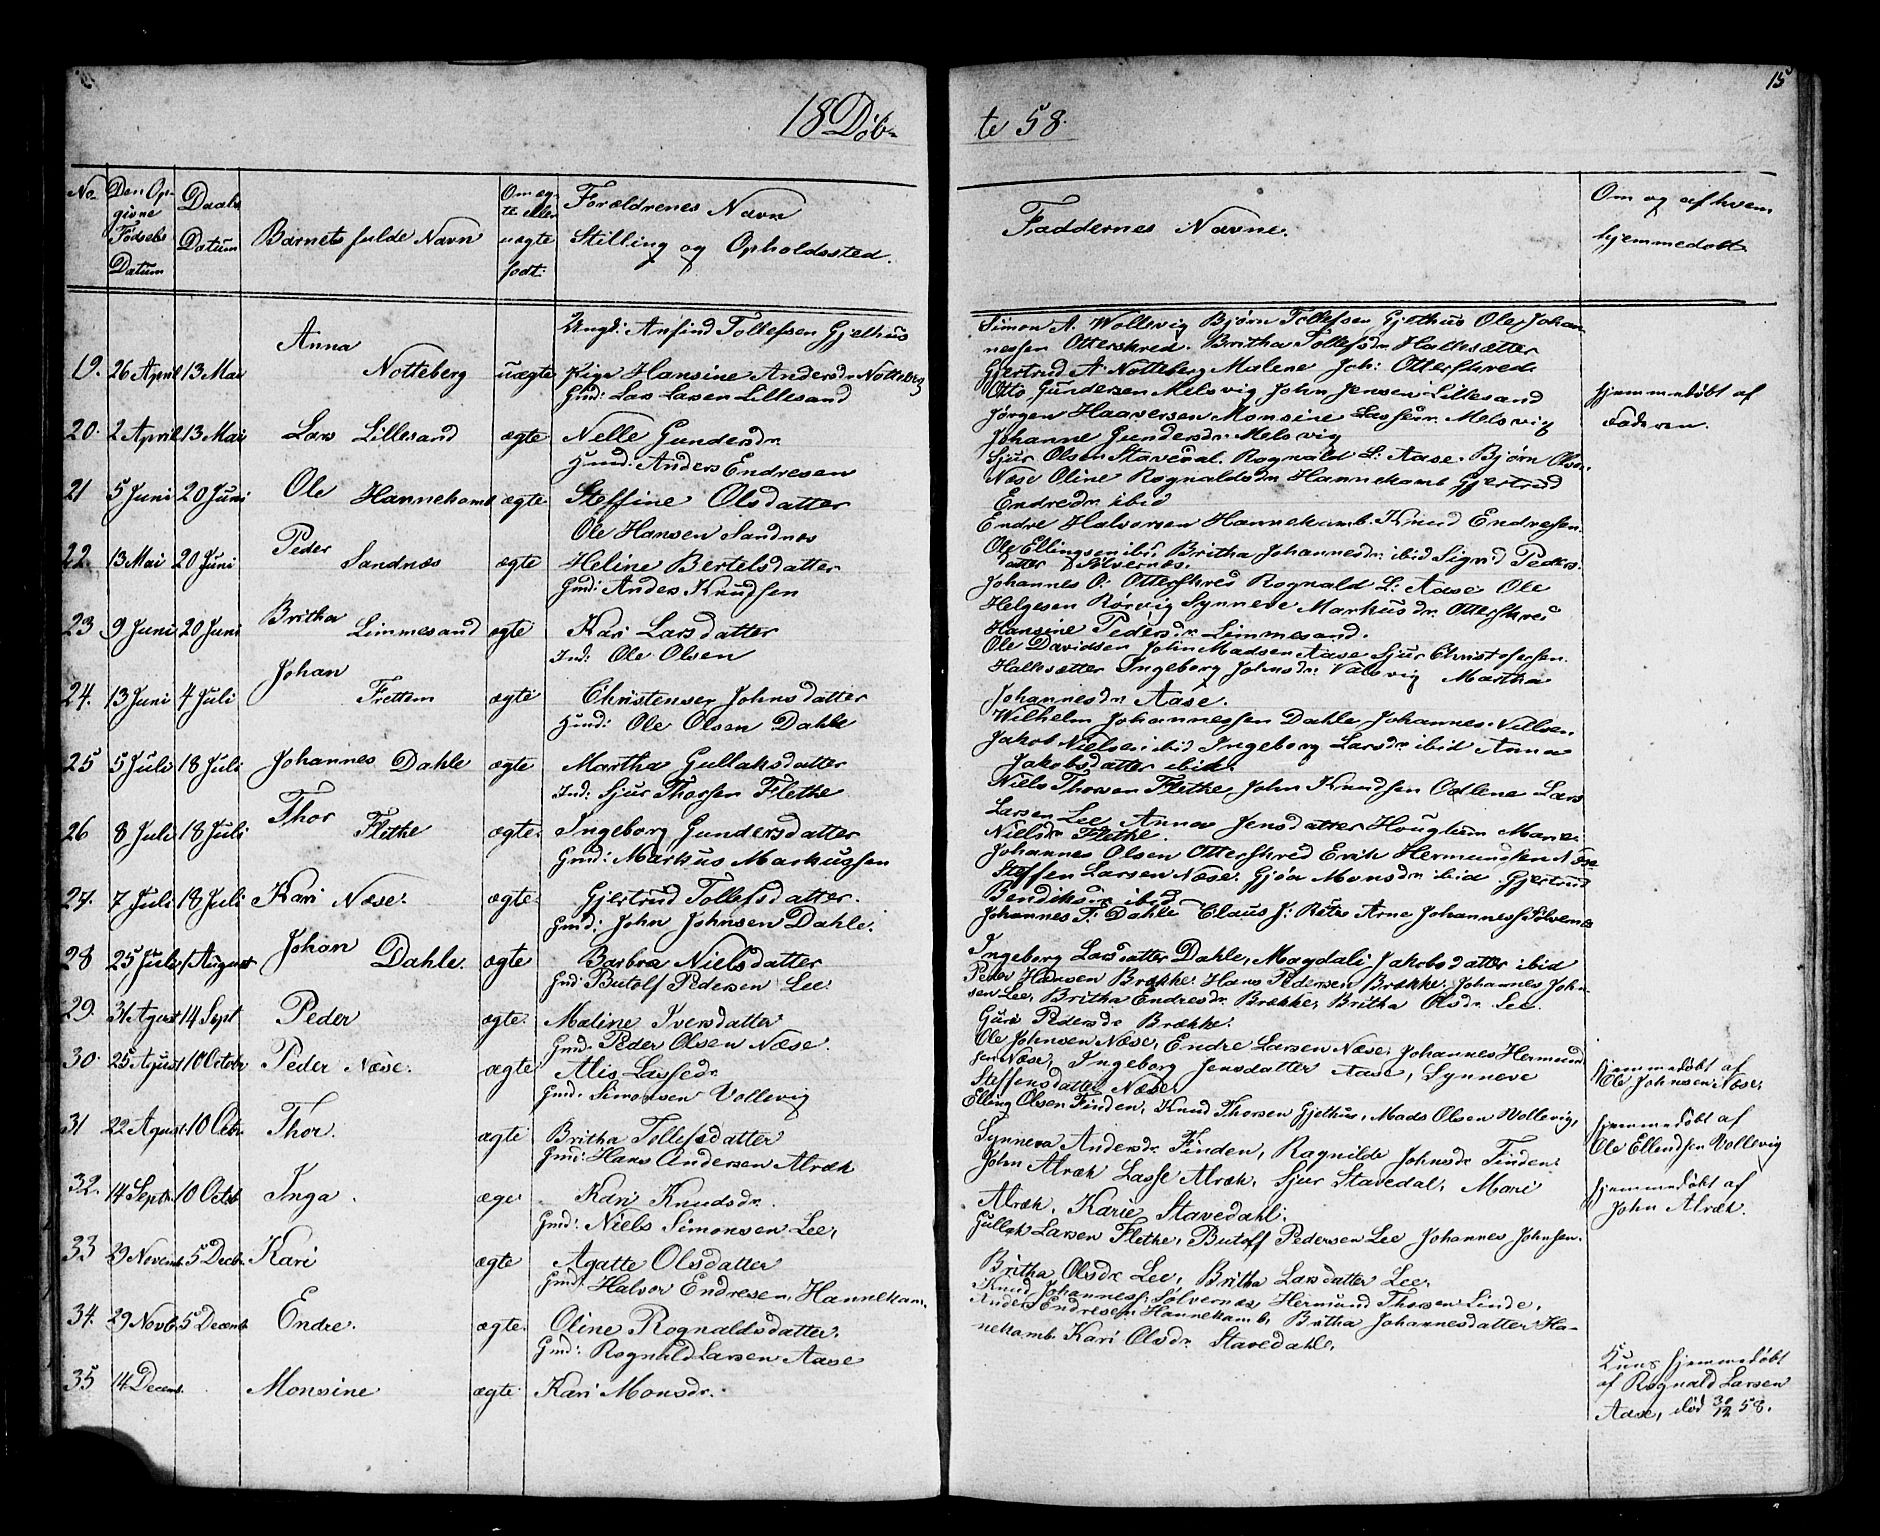 15
18 Døb-
te 58.
No
Den Op-
givne
Fødsels
Datum
Daabs
Datum
Barnets fulde Navn
Om æg-
te eller
uægte
født.
Forældrenes Navn
Stilling og Opholdssted.
Faddernes Navne.
Om og af hvem
hjemmedøbt
19. 26 April 13 Mai Anna Notteberg uægte
Ungk: Anfind Tollefsen Gjelhus
Pige Hansine Andersdr Notteberg
Simon A. Wollevig Bjørn Tollefsen Gjelhus Ole Johan-
nessen Otterskred. Britha Tollefsdr Halksætter
Gjertrud A. Notteberg Malene Joh: Otterskred
20. 2 April 13 Mai Lars Lillesand ægte
Gmd: Lars Larsen Lillesand
Nelle Gundersdr.
Otto Gundersen Melsvig John Jensen Lillesand
Jørgen Haaversen Monsine Lassesr. Melsvig
Johanne Gundersdr. Melsvig
hjemmedøbt af
Faderen.
21 5 Juni 20 Juni Ole Hannekamb ægte.
Huusmd: Anders Endresen
Steffine Olsdatter
Sjur Olsen Stavedal. Rognald L: Aase. Bjørn Olsen
Næse Oline Rognaldsdr Hannekamb Gjertrud
Endresdr. ibid
22. 13 Mai 20 Juni Peder Sandnæs ægte
Ole Hansen Sandnæs
Heline Bertelsdatter
Endre Halvorsen Hannekamb. Knud Endresen.
Ole Ellingsen ibd Britha Johannesdr. ibid Sigrid Peders-
datter Sølvernæs.
23 9 Juni 20 Juni Britha Limmesand ægte
Gmd: Andes Knudsen
Kari Larsdatter
Johannes O: Otterskred Rognald L: Aase Ole
Helgesen Rørvig Synneve Markusdr. Otterskred
Hansine Pedersdr. Limmesand.
24. 13 Juni 4 Juli Johan Frettem ægte
Ind: Ole Olsen
Christense Johnsdatter
Ole Davidsen John Madsen Aase Sjur Christofersen.
Halksætter Ingeborg Johnsdr. Valsvig Martha
Johannesdr Aase.
25 5 Juli 18 Juli Johannes Dahle ægte
Huusmd: Ole Olsen Dahle
Martha Gullaksdatter
Wilhelm Johannessen Dahle Johannes Nillsen
Jakob Nielsen ibid Ingeborg Larsdr ibid Anna
Jakobsdatter ibid.
26 8 Juli 18 Juli Thor Fletke ægte.
Ind: Sjur Thorsen Fletke
Ingeborg Gundersdatter
Niels Thorsen Fletke John Knudsen Odlene Lars
Larsen Lee Anna Jensdatter Houglum Marie
Nielsdr Fletke.
27. 7 Juli 18 Juli Kari Næse. ægte.
Gmd: Markus Markussen
Gjertrud Tollefsdatter.
Johannes Olsen Otterskred Erik Hermundsen Næse
Steffen Larsen Næse. Gjøa Monsdr ibid Gjertrud
Bendiksdr ibid
28 25 Juli 1 August Johan Dahle. ægte
Gmd: John Johnsen Dahle.
Barbra Nielsdatter
Johannes T: Dahle Claus J: Retes Arne Johanness: Sølvernæs
Ingeborg Larsdatter Dahle, Magdali Jakobsdatter ibid
29. 31 Agust 14 Sept Peder ægte.
Gmd: Butolf Pedersen Lee.
Maline Iversdatter
Peder Hansen Brække. Hans Pedersen Brække. Johannes John-
sen Lee, Britha Endresdr. Brække, Britha Olsdr. Lee
Guri Pedersdr Brække.
30. 25 Agust 10 Octobr Peder Næse. ægte
Gmd: Peder Olsen Næse.
Alis Lassedr.
Ole Johnsen Næse, Endre Larsen Næse, Johannes Hermund-
sen Næse, Ingeborg Jensdatter Aase, Synneve
Steffensdatter Næse
hjemmedøbt af
Ole Johnsen Næse,
31 22 Agust 10 Octr. Thor. ægte
Gmd. Simonsen Vollevig
Britha Tollefsdatter
Elling Olsen Finden, Knud Thorsen Gjelhus, Mads Olsen Vollevig,
Synneva Andersdr. Finden, Ragnilde Johnsdr Finden.
hjemmedøbt af
Ole Ellendsen Vollevig
32. 14 Septr. 10 Octob Inga. æge
Gmd: Hans Andersen Alræk
Kari Knudsdr.
John Alræk Lasse Alræk, Sjur Stavedal, Mari
Alræk, Karie Stavedahl.
hjemmedøbt af
John Alræk.
33 29 Novemb. 5 Decbr. Kari ægte
Gmd: Niels Simonsen Lee,
Agatte Olsdatter
Gullak Larsen Fletke, Butolf Pedersen Lee Johannes Johnsen.
Britha Olsdr Lee, Britha Larsdatter Lee.
34. 29 Novb. 5 Decemb. Endre. ægte.
Gmd: Halvor Endresen, Hannekam.
Oline Rognaldsdatter.
Knud Johanness: Sølvernæs, Hermund Thorsen Linde,
Anders Endresen Hannekamb, Britha Johannesdatter Ha-
nekamb. Kari Olsdr. Stavedahle.
35 14 Decemb. Monsine ægte.
Gmd: Rognald Larsen Aase
Kari Monsdr.
Kuns hjemmedøbt
af Rognald Larsen
Aase, død 30/12 58.